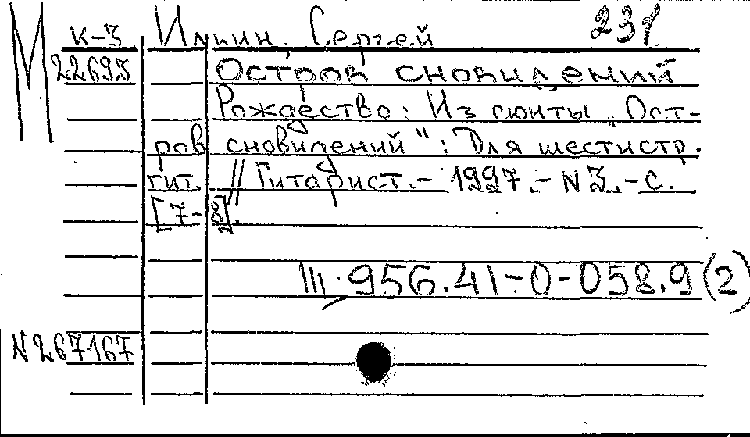 М К-3 Ильин, Сергей 231
22695 Остров сновидений
Рождество: Из сюиты „Ост-
ров сновидений": Для шестистр.
гит. // Гитарист. - 1997. - N 3. - с.
[7-8].
Щ. 956.41-0-058.9 (2)
N 267167